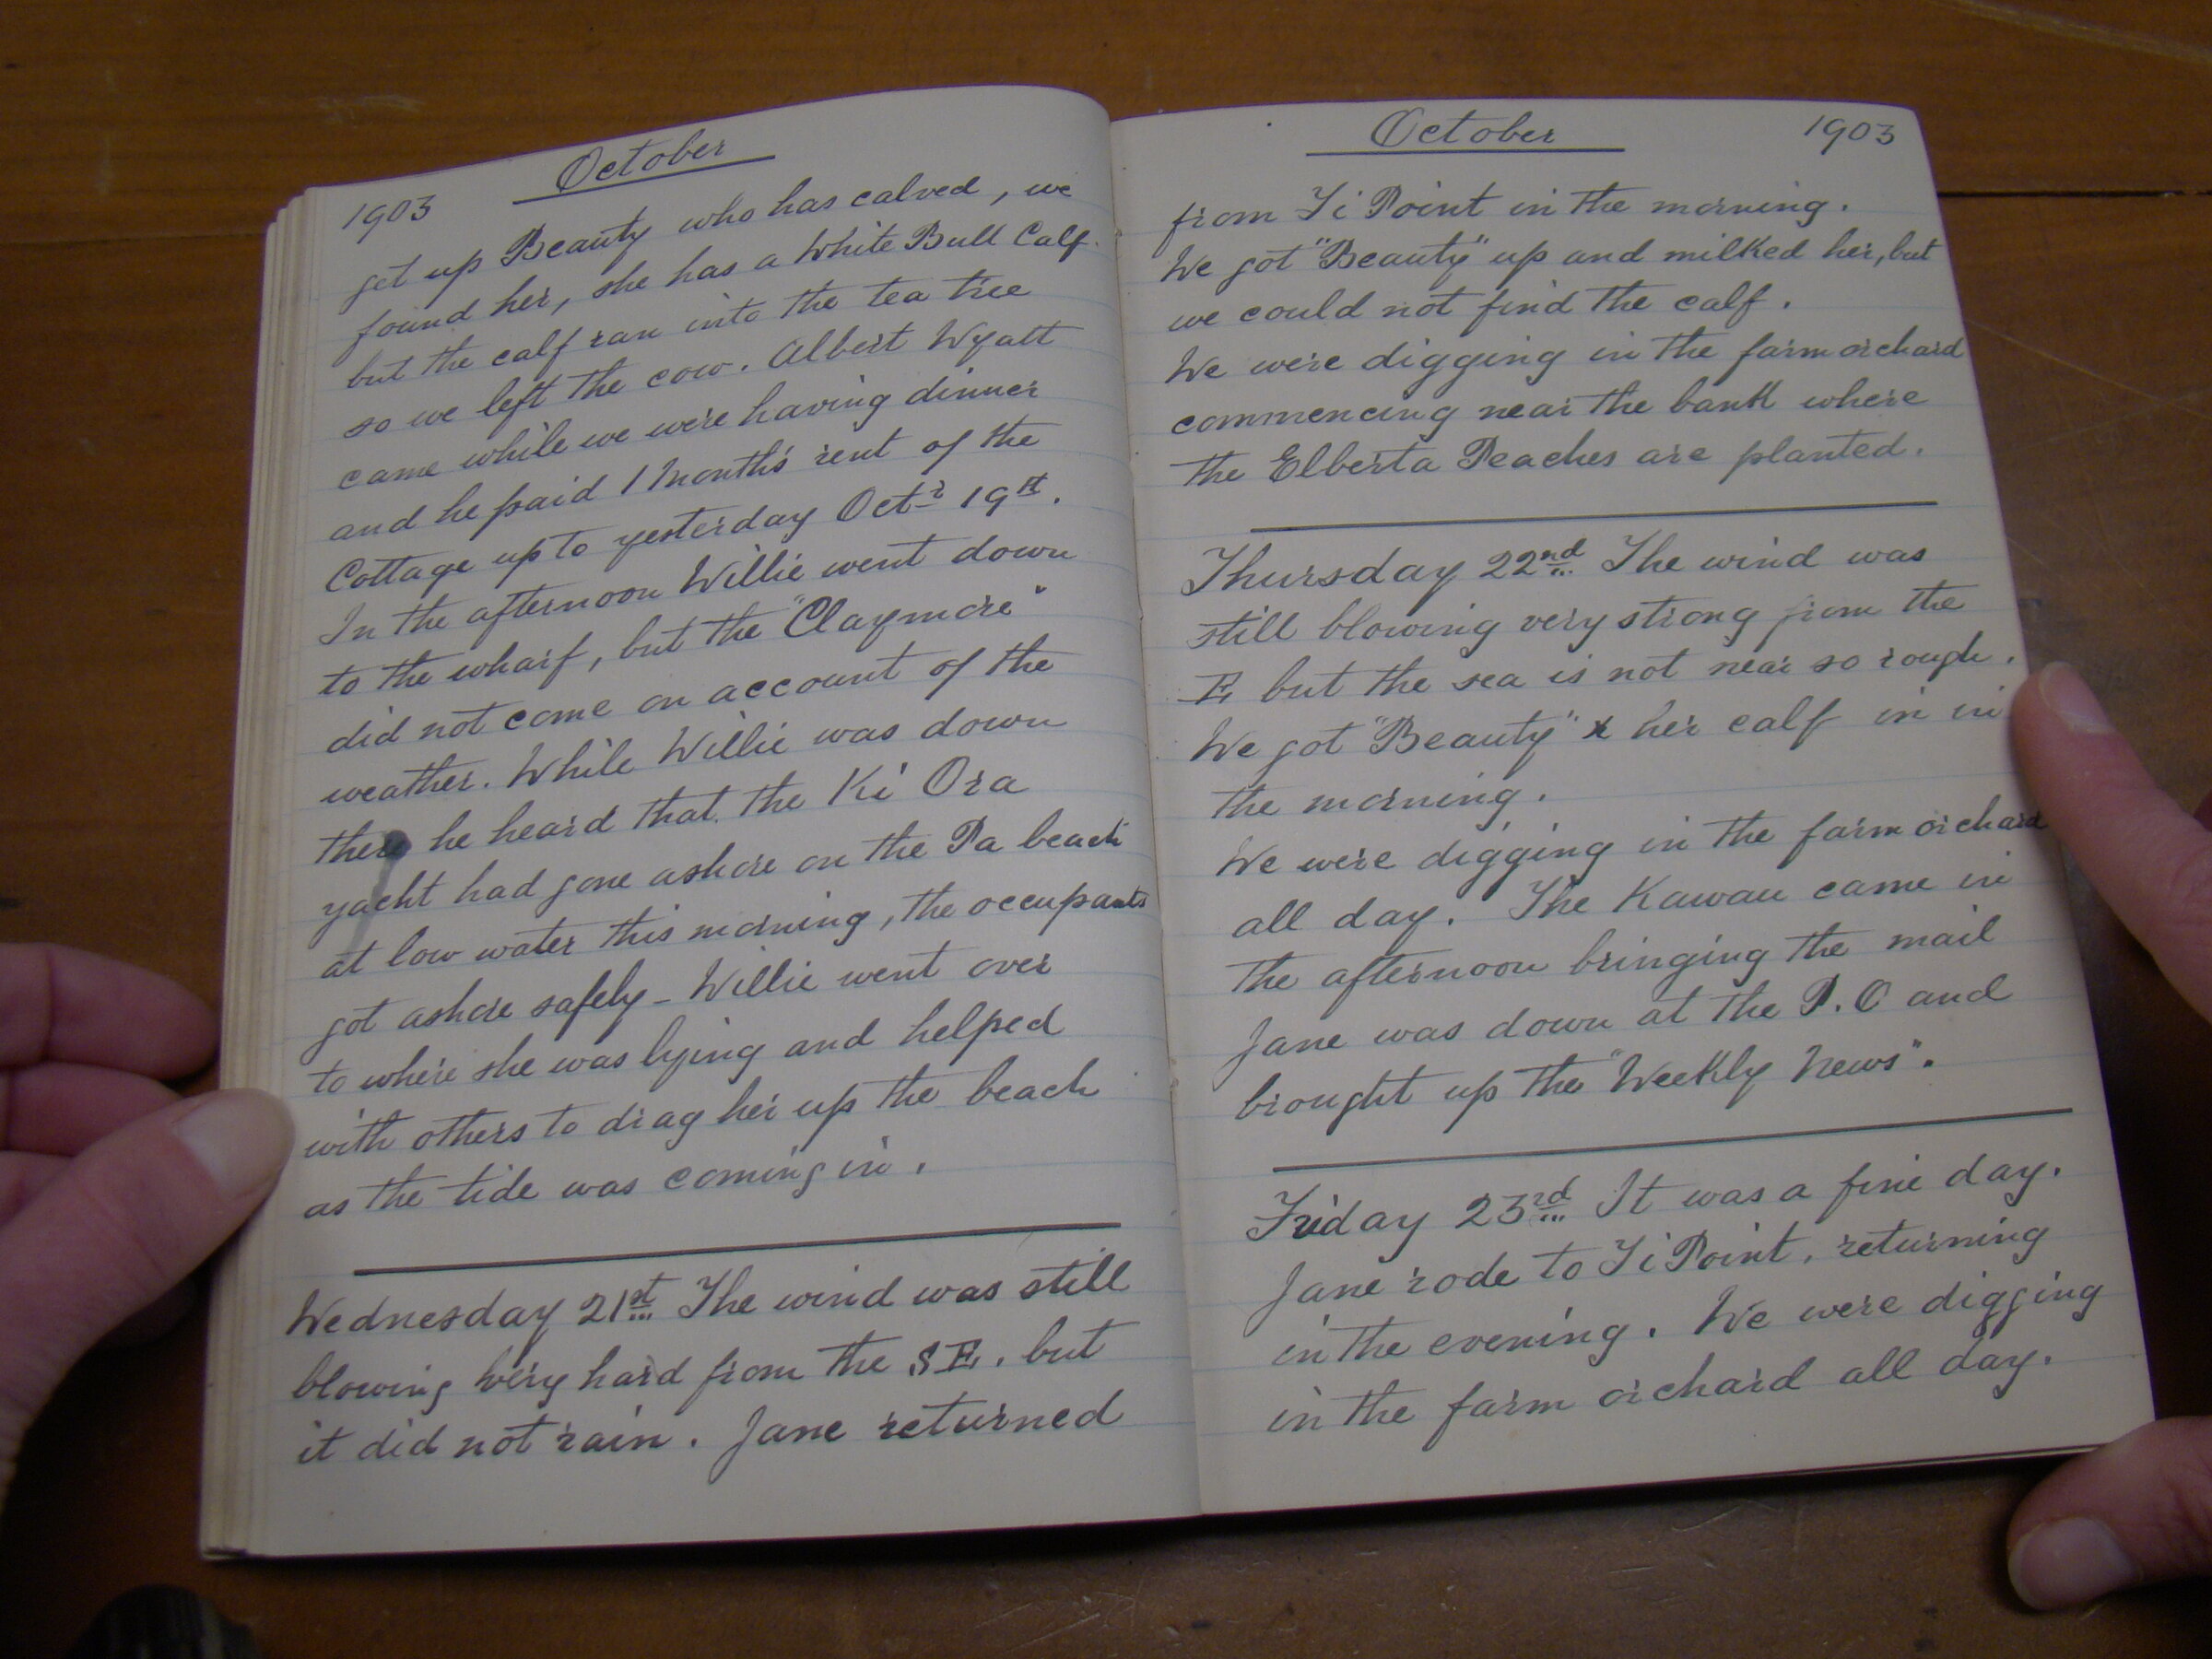 October
1903
get up Beauty who has calved, we
found her, she has a White Bull Calf.
but the calf ran into the tea tree
so we left the cow. Albert Wyatt
came while we were having dinner
and he paid 1 Month's rent of the
Cottage up to yesterday Octr 19th.
In the afternoon Willie went down
to the wharf, but the "Claymore"
did not come on account of the
weather. While Willie was down
there he heard that the Ki Ora
yacht had gone ashore on the Pa beach
at low water this morning, the occupants
got ashore safely - Willie went over
to where she was lying and helped
with others to drag her up the beach
as the tide was coming in.
Wednesday 21st The wind was still
blowing very hard from the S E. but
it did not rain. Jane returned
October 1903
from Ti Point in the morning.
We got "Beauty" up and milked her, but
we could not find the calf.
We were digging in the farm orchard
commencing near the bank where
the Elberta Peaches are planted.
Thursday 22nd The wind was
still blowing very strong from the
E but the sea is not near so rough.
We got "Beauty" & her calf in in
the morning.
We were digging in the farm orchard
all day. The Kawau came in
the afternoon bringing the mail
Jane was down at the P.O and
brought up the "Weekly News".
Friday 23rd It was a fine day.
Jane rode to Ti Point, returning
in the evening. We were digging
in the farm orchard all day.